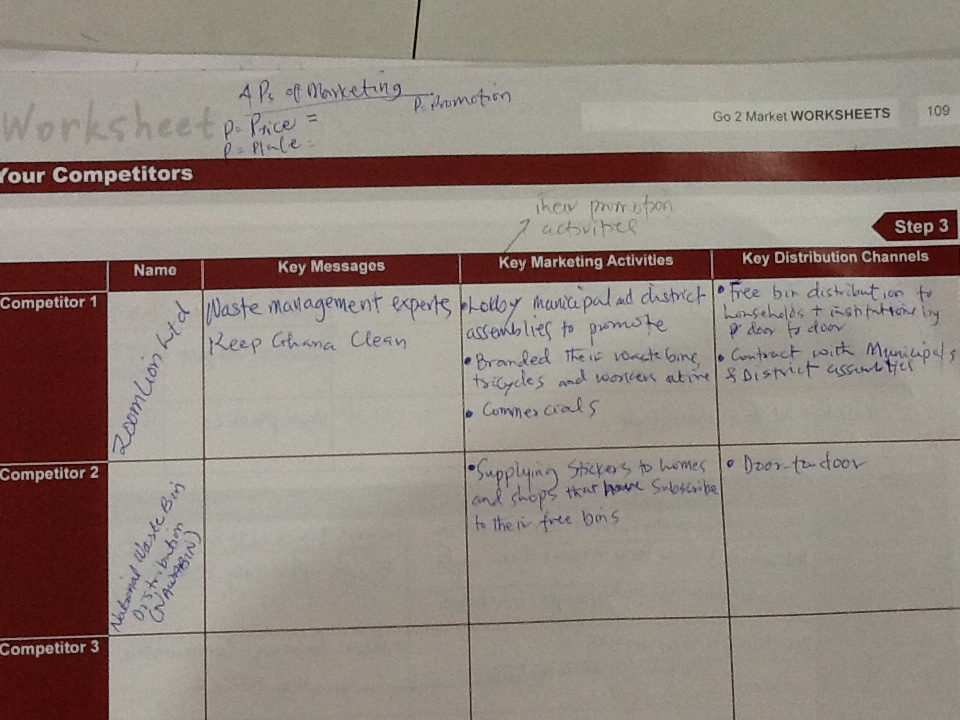 4 Ps of Marketing
P= Promotion
Worksheet
P= Price =
Go 2 Market WORKSHEETS 109
P= Place =
Your Competitors
Their promotion
activities
Step 3
Name
Key Messages
Key Marketing Activities
Key Distribution Channels
Competitor 1
Zoomlion Ltd
Waste management experts
Keep Ghana Clean
• Lobby municipal and district
assemblies to promote
• Branded their waste bins,
tricycles and workers attire
• Commercials
• Free bin distribution to
households + institutions by
door to door
• Contract with Municipals
& District assemblies
Competitor 2
National Waste Bin
Distribution
• Supplying Stickers to homes
and shops that have Subscribe
to their free bins
• Door-to-door
Competitor 3